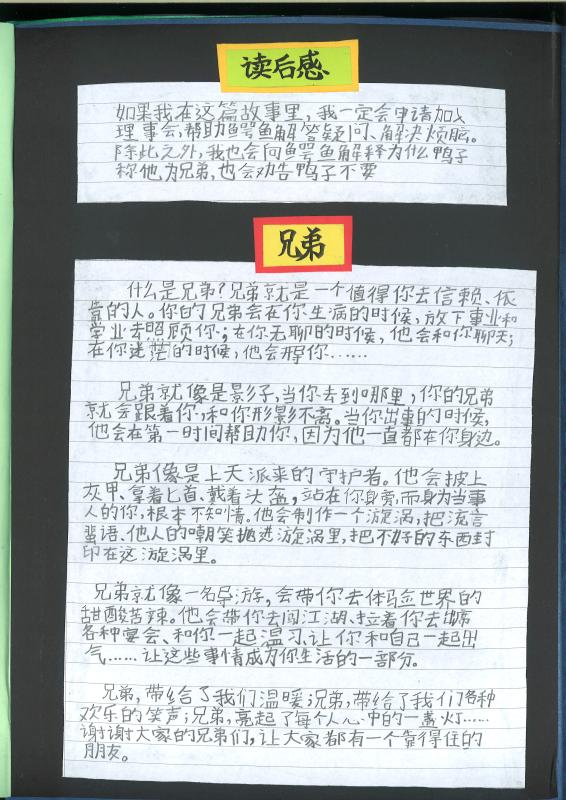 读后感
如果我在这篇故事里，我一定会申请加入
理事会，帮助鳄鱼解答疑问、解决烦恼。
除此之外，我也会向鳄鱼解释为什么鸭子
称他为兄弟，也会劝告鸭子不要
兄弟
什么是兄弟？兄弟就是一个值得你去信赖、依
靠的人。你的兄弟会在你生病的时候，放下事业和
学业去照顾你；在你无聊的时候，他会和你聊天；
在你迷茫的时候，他会帮你……
兄弟就像是影子，当你去到哪里，你的兄弟
就会跟着你，和你形影不离。当你出事的时候，
他会在第一时间帮助你，因为他一直都在你身边。
兄弟像是上天派来的守护者。他会披上
灰甲、拿着匕首、戴着头盔，站在你身旁，而身为当事
人的你，根本不知情。他会制作一个漩涡，把流言
蜚语、他人的嘲笑抛进漩涡里，把不好的东西封
印在这漩涡里。
兄弟就像一名导游，会带你去体验世界的
甜酸苦辣。他会带你去闯江湖、拉着你去出席
各种宴会、和你一起温习、让你和自己一起出
气……让这些事情成为你生活的一部分。
兄弟，带给了我们温暖；兄弟，带给了我们各种
欢乐的笑声；兄弟，亮起了每个人心中的一盏灯……
谢谢大家的兄弟们，让大家都有一个靠得住的
朋友。